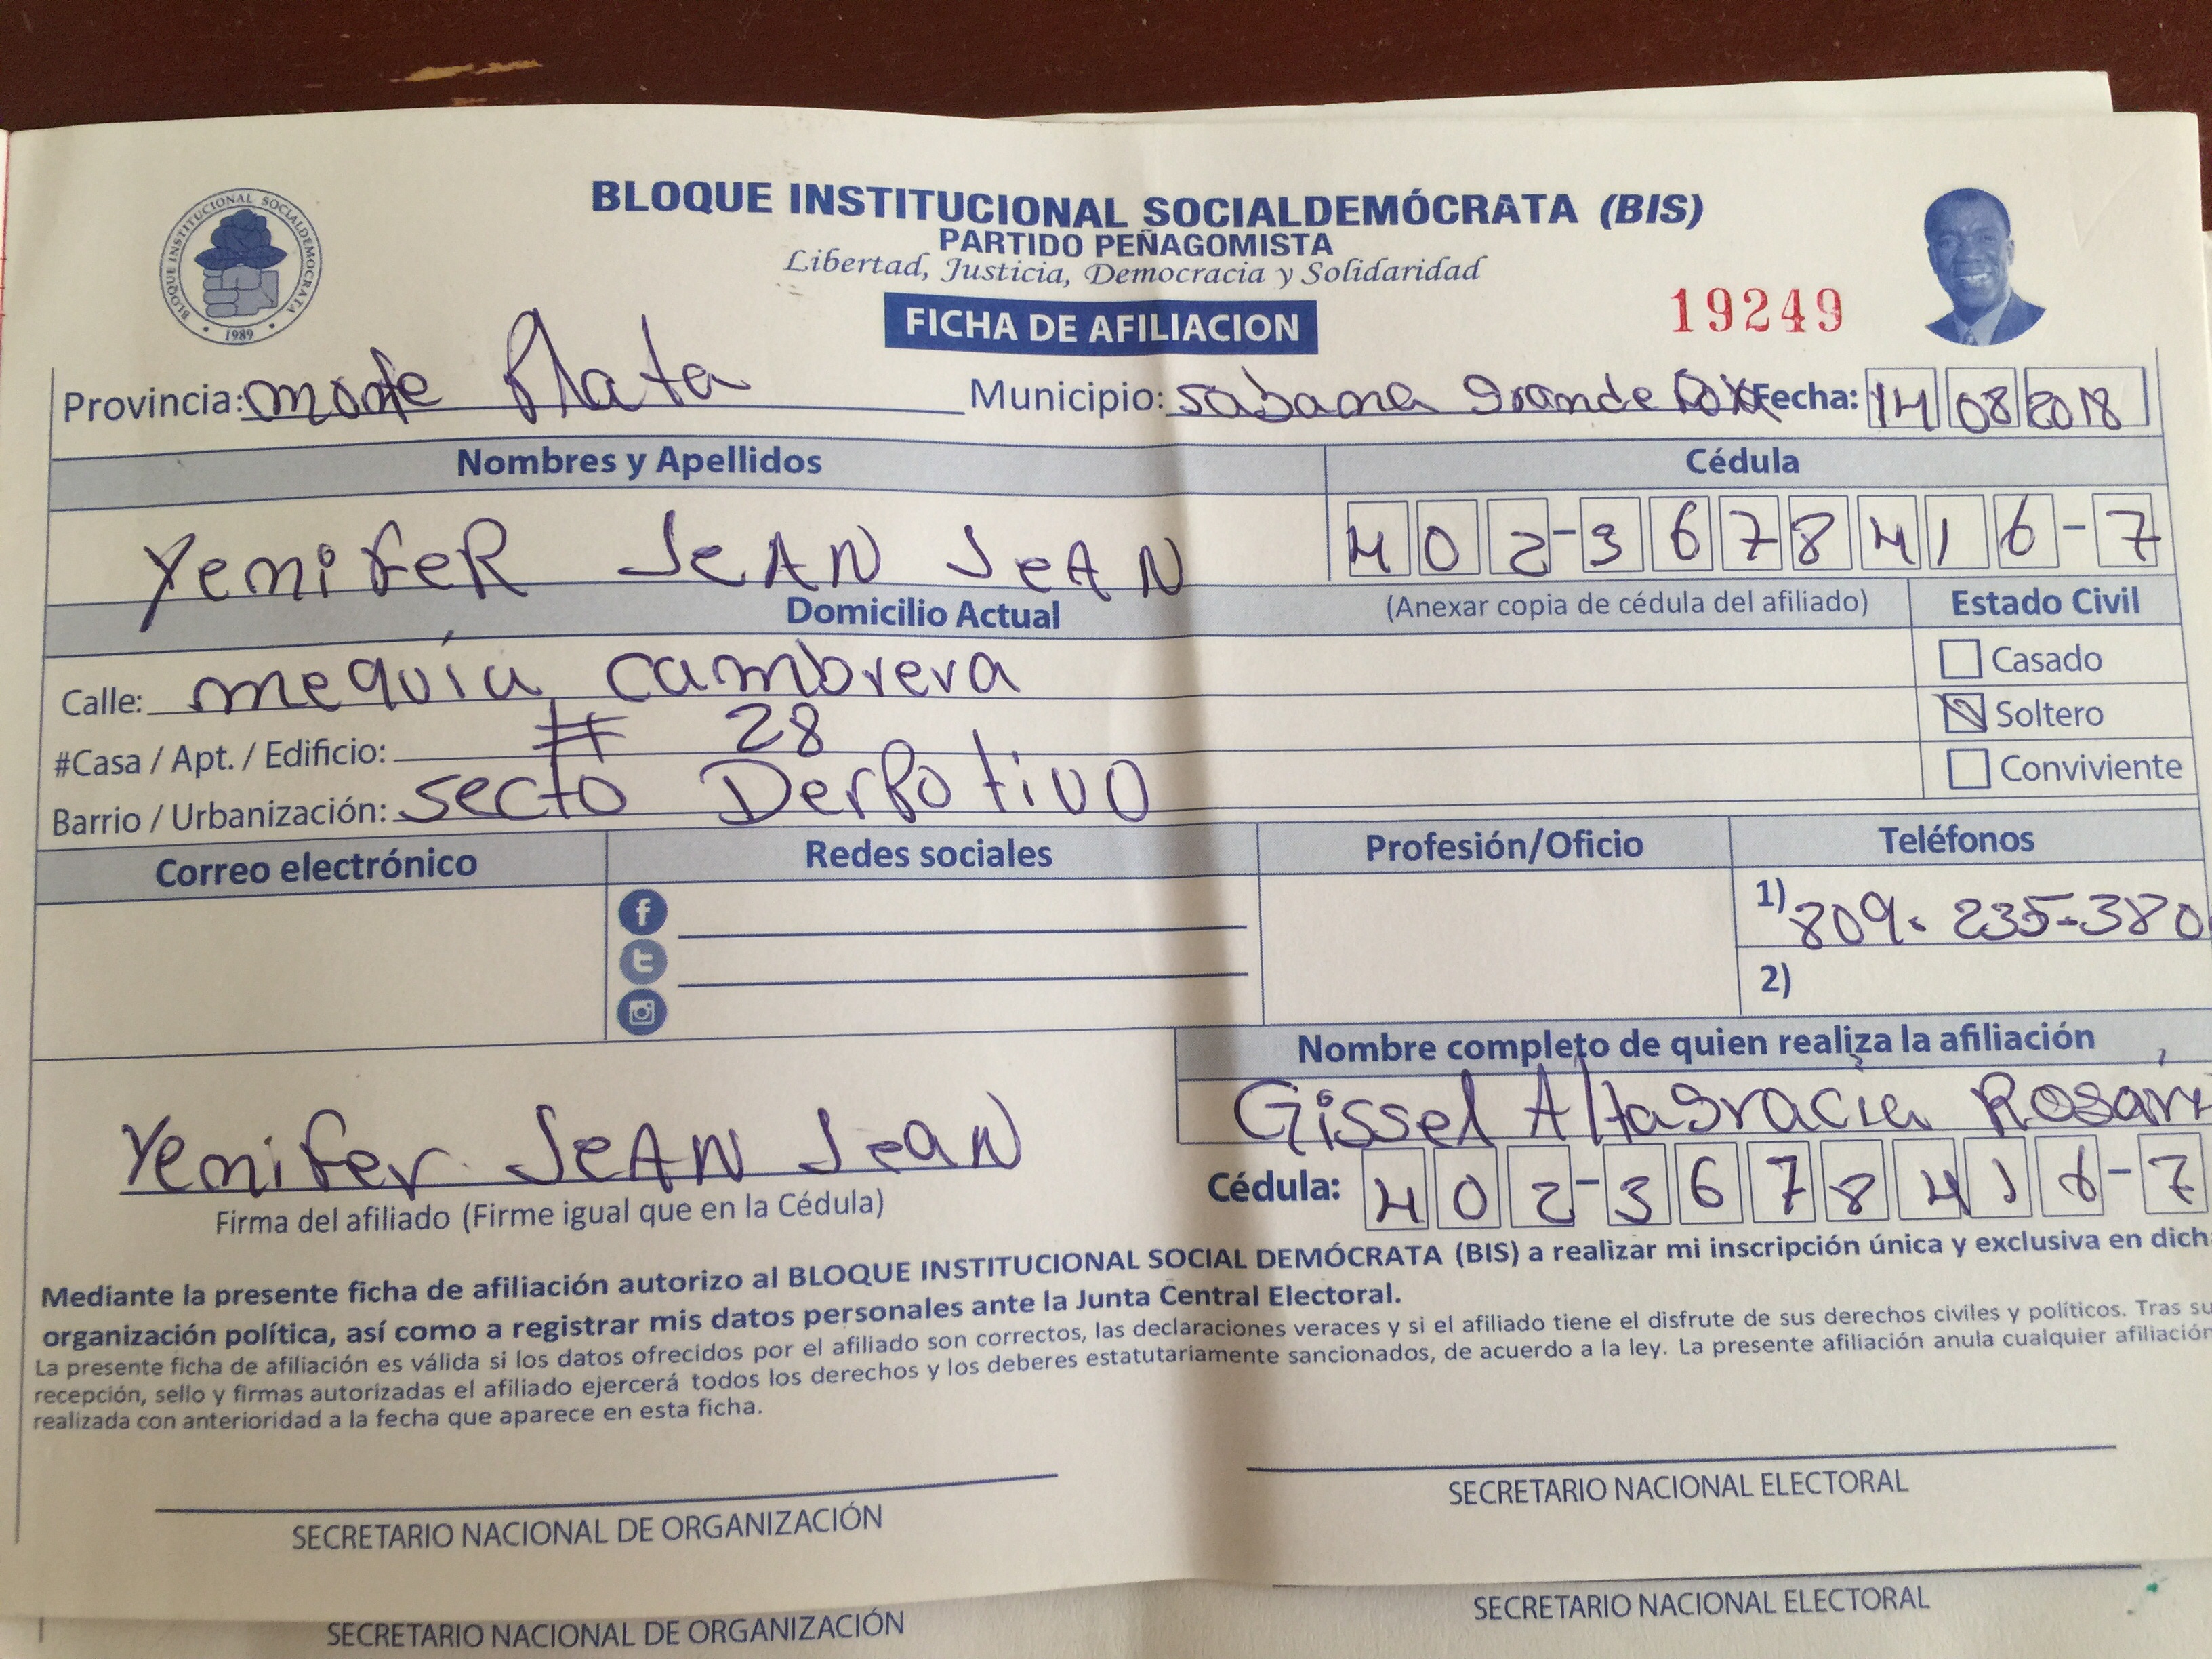 BLOQUE INSTITUCIONAL SOCIALDEMÓCRATA (BIS)
PARTIDO PEÑAGOMISTA
Libertad, Justicia, Democracia y Solidaridad
BLOQUE INSTITUCIONAL SOCIALDEMOCRATA
1989
FICHA DE AFILIACION
19249
Provincia: monte Plata Municipio: sabana grande Fecha: 14 08 2018
Nombres y Apellidos Cédula
YemifeR JeAN JeAN 402-3678416-7
Domicilio Actual (Anexar copia de cédula del afiliado) Estado Civil
Calle: mequia cambrera Casado
#Casa / Apt. / Edificio: # 28 Soltero
Barrio / Urbanización: secto DerPotivo Conviviente
Correo electrónico Redes sociales Profesión/Oficio Teléfonos
1) 809. 235-380
2)
Nombre completo de quien realiza la afiliación
Gissel Altagracia Rosari
Yemifer JeAN JeaN
Cédula: 402-3678416-7
Firma del afiliado (Firme igual que en la Cédula)
Mediante la presente ficha de afiliación autorizo al BLOQUE INSTITUCIONAL SOCIAL DEMÓCRATA (BIS) a realizar mi inscripción única y exclusiva en dich
organización política, así como a registrar mis datos personales ante la Junta Central Electoral.
La presente ficha de afiliación es válida si los datos ofrecidos por el afiliado son correctos, las declaraciones veraces y si el afiliado tiene el disfrute de sus derechos civiles y políticos. Tras su
recepción, sello y firmas autorizadas el afiliado ejercerá todos los derechos y los deberes estatutariamente sancionados, de acuerdo a la ley. La presente afiliación anula cualquier afiliación
realizada con anterioridad a la fecha que aparece en esta ficha.
SECRETARIO NACIONAL DE ORGANIZACIÓN SECRETARIO NACIONAL ELECTORAL
SECRETARIO NACIONAL DE ORGANIZACIÓN SECRETARIO NACIONAL ELECTORAL